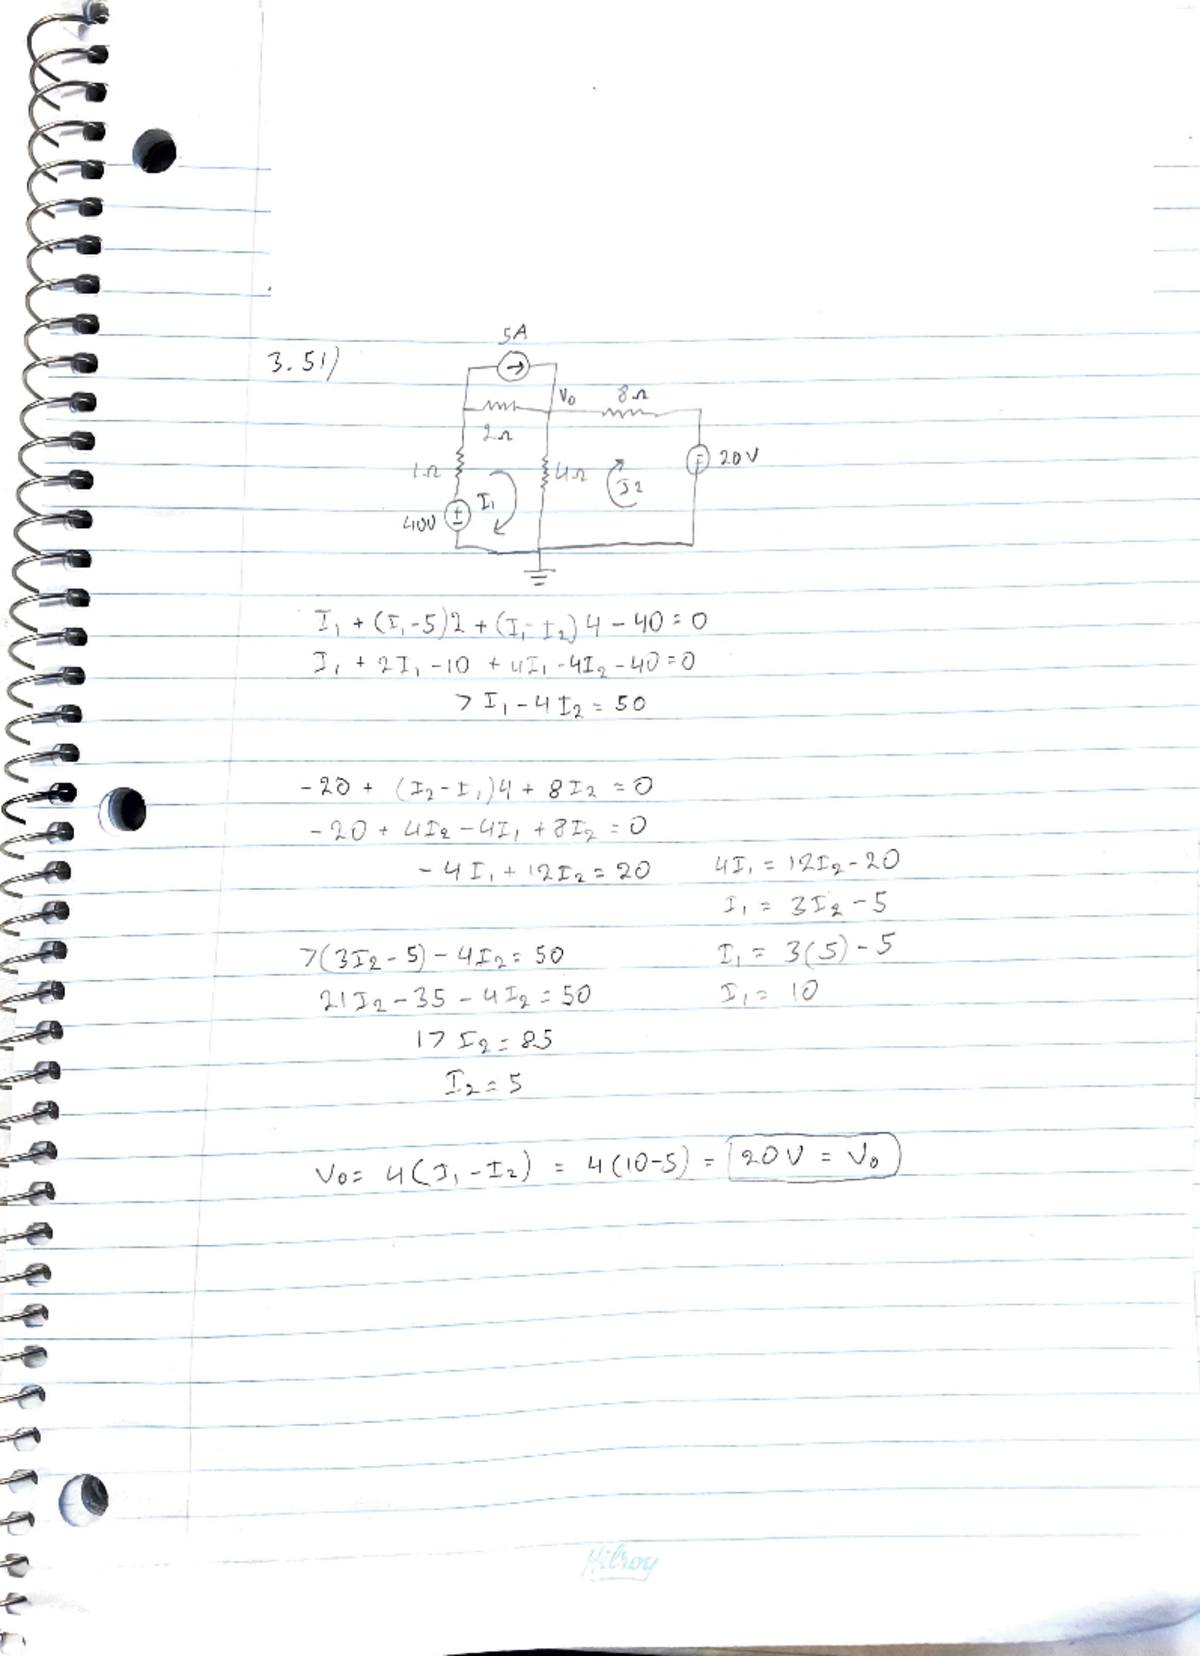 3.51)
5A
V₀ 8Ω
2Ω
1Ω 4Ω 20V
I₁ I2
40V
I₁ + (I₁-5)2 + (I₁-I₂)4 - 40 = 0
I₁ + 2I₁ - 10 + 4I₁ - 4I₂ - 40 = 0
7I₁ - 4I₂ = 50
-20 + (I₂-I₁)4 + 8I₂ = 0
-20 + 4I₂ - 4I₁ + 8I₂ = 0
-4I₁ + 12I₂ = 20 4I₁ = 12I₂ - 20
I₁ = 3I₂ - 5
7(3I₂ - 5) - 4I₂ = 50 I₁ = 3(5) - 5
21I₂ - 35 - 4I₂ = 50 I₁ = 10
17I₂ = 85
I₂ = 5
V₀ = 4(I₁ - I₂) = 4(10-5) = 20V = V₀
Hilroy